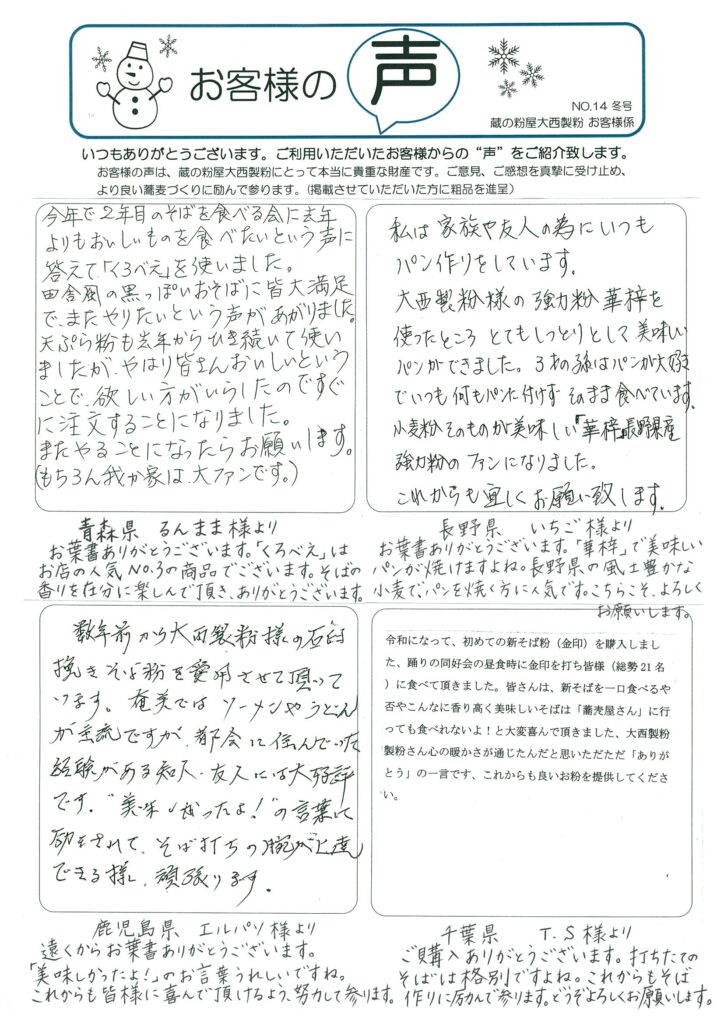 お客様の 声
NO.14 冬号
蔵の粉屋大西製粉 お客様係
いつもありがとうございます。ご利用いただいたお客様からの“声”をご紹介致します。
お客様の声は、蔵の粉屋大西製粉にとって本当に貴重な財産です。ご意見、ご感想を真摯に受け止め、
より良い蕎麦づくりに励んで参ります。(掲載させていただいた方に粗品を進呈)
今年で2年目のそばを食べる会に去年
よりもおいしいものを食べたいという声に
答えて「くろべえ」を使いました。
田舎風の黒っぽいおそばに皆大満足
で、またやりたいという声があがりました。
天ぷら粉も去年からひき続いて使い
ましたが、やはり皆さんおいしいという
ことで、欲しい方がいらしたのですぐ
に注文することになりました。
またやることになったらお願いします。
(もちろん我が家は、大ファンです。)
青森県 るんまま様より
お葉書ありがとうございます。「くろべえ」は
お店の人気NO.3の商品でございます。そばの
香りを存分に楽しんで頂き、ありがとうございます。
私は家族や友人の為にいつも
パン作りをしています。
大西製粉様の強力粉華梓を
使ったところ とてもしっとりとして美味しい
パンができました。3才の孫はパンが大好き
でいつも何もパンに付けず そのまま食べています。
小麦粉そのものが美味しい「華梓」長野県産
強力粉のファンになりました。
これからも宜しくお願い致します。
長野県 いちご様より
お葉書ありがとうございます。「華梓」で美味しい
パンが焼けますよね。長野県の風土豊かな
小麦でパンを焼く方に人気です。こちらこそ、よろしく
お願いします。
数年前から大西製粉様の石臼
挽きそば粉を愛用させて頂って
います。奄美ではソーメンやうどん
が主流ですが、都会に住んでいた
経験がある知人・友人には大好評
です。“美味しかったよ!”の言葉に
励まされて、そば打ちの腕が上達
できる様、頑張ります。
鹿児島県 エルパソ様より
遠くからお葉書ありがとうございます。
「美味しかったよ!」のお言葉うれしいですね。
これからも皆様に喜んで頂けるよう、努力して参ります。
令和になって、初めての新そば粉(金印)を購入しまし
た、踊りの同好会の昼食時に金印を打ち皆様(総勢21名
)に食べて頂きました。皆さんは、新そばを一口食べるや
否やこんなに香り高く美味しいそばは「蕎麦屋さん」に行
っても食べれないよ!と大変喜んで頂きました、大西製粉
製粉さん心の暖かさが通じたんだと思いただただ「ありが
とう」の一言です、これからも良いお粉を提供してくださ
い。
千葉県 T.S様より
ご購入ありがとうございます。打ちたての
そばは格別ですよね。これからもそば
作りに励んで参ります。どうぞよろしくお願いします。